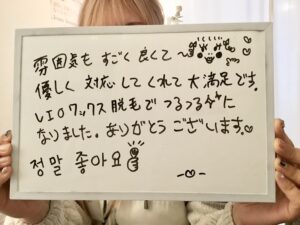 雰囲気も すごく 良くて〜
優しく 対応 してくれて 大満足です。
VIOワックス脱毛で つるつるに
なりました。ありがとう ございます。♡
정말 좋아요